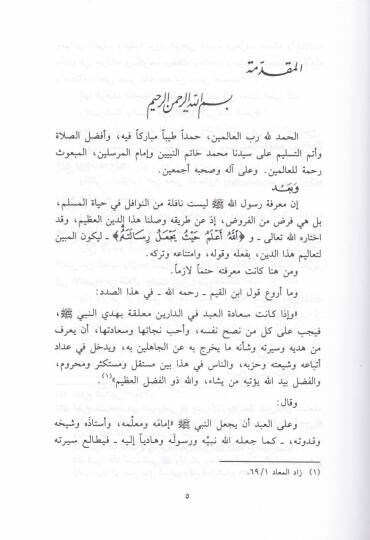 المقدّمة
بسم الله الرحمن الرحيم
الحمد لله رب العالمين، حمداً طيباً مباركاً فيه، وأفضل الصلاة
وأتم التسليم على سيدنا محمد خاتم النبيين وإمام المرسلين، المبعوث
رحمة للعالمين. وعلى آله وصحبه أجمعين.
وبعد
إن معرفة رسول الله ﷺ ليست نافلة من النوافل في حياة المسلم،
بل هي فرض من الفروض، إذ عن طريقه وصلنا هذا الدين العظيم، وقد
اختاره الله تعالى ـ و ﴿اللَّهُ أَعْلَمُ حَيْثُ يَجْعَلُ رِسَالَتَهُ﴾ ـ ليكون المبين
لتعاليم هذا الدين، بفعله وقوله، وامتناعه وتركه.
ومن هنا كانت معرفته حتماً لازماً.
وما أروع قول ابن القيم ـ رحمه الله ـ في هذا الصدد:
«وإذا كانت سعادة العبد في الدارين معلقة بهدي النبي ﷺ،
فيجب على كل من نصح نفسه، وأحب نجاتها وسعادتها، أن يعرف
من هديه وسيرته وشأنه ما يخرج به عن الجاهلين به، ويدخل في عداد
أتباعه وشيعته وحزبه، والناس في هذا بين مستقل ومستكثر ومحروم،
والفضل بيد الله يؤتيه من يشاء، والله ذو الفضل العظيم»(١).
وقال:
وعلى العبد أن يجعل النبي ﷺ «إمامَه ومعلّمه، وأستاذَه وشيخه
وقدوته، ـ كما جعله الله نبيَّه ورسولَه وهادياً إليه ـ فيطالع سيرته
(١) زاد المعاد ٦٩/١.
٥